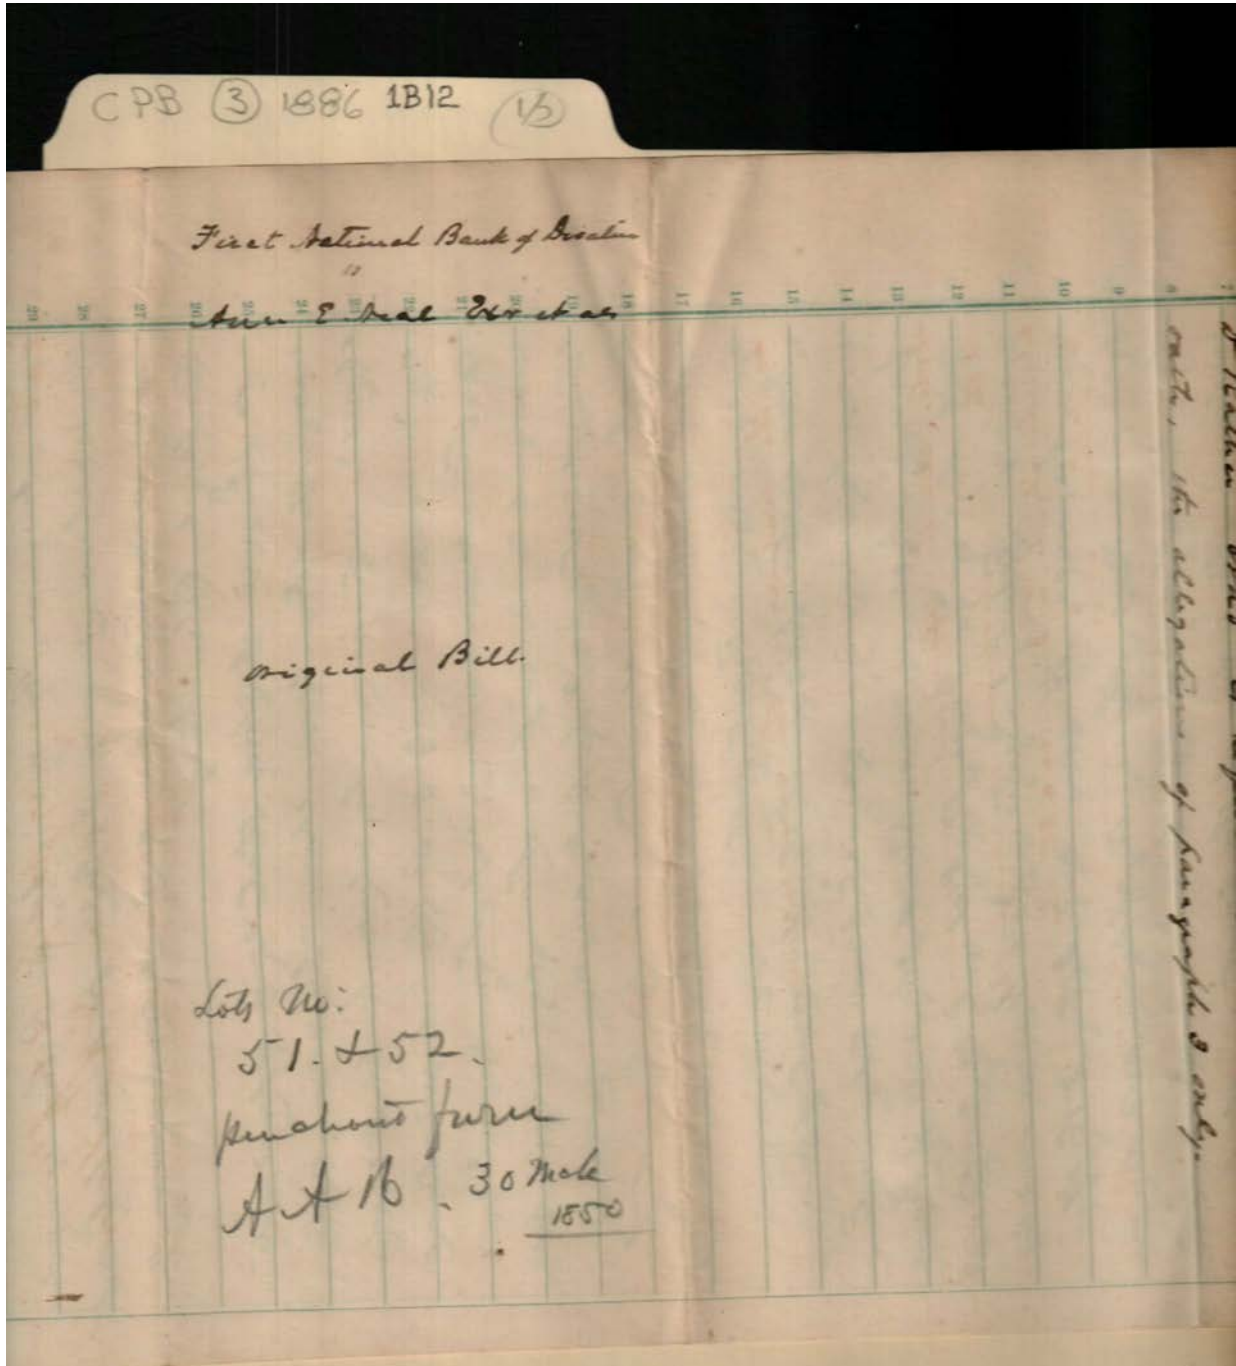 CPB 3 1886 1B12 (1/5)
First National Bank of Decatur
vs
Ann E. Neal Exr et als
29 28 27 26 25 24 23 22 21 20 19 18 17 16 15 14 13 12 11 10 9 8 7
Original Bill.
Lots No:
51. & 52.
purchased from
A A B. 30
1850
oath, the allegations of paragraph 3 only.